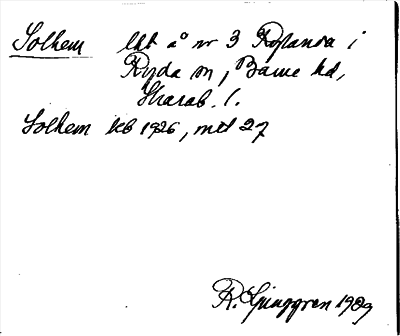 Solhem lht å nr 3 Röstanda i
Ryda sn, Barne hd,
Skarab. l.
Solhem kb 1926, mtl 27
R. Ljunggren 1989